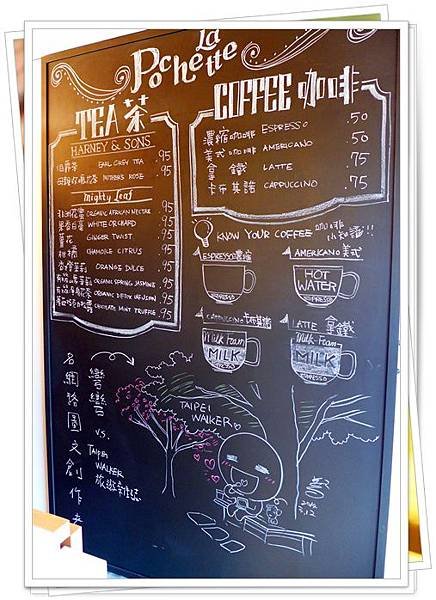 La
Pochette
TEA 茶
HARNEY & SONS
伯爵茶 EARL GREY TEA .95
.95
Mighty Leaf
ORGANIC AFRICAN NECTAR .95
WHITE ORCHARD .95
GINGER TWIST .95
CHAMOMILE CITRUS .95
ORANGE DULCE .95
ORGANIC SPRING JASMINE .95
.95
CHOCOLATE MINT TRUFFLE .95
COFFEE 咖啡
濃縮咖啡 ESPRESSO .50
美式咖啡 AMERICANO .50
拿鐵 LATTE .75
卡布其諾 CAPPUCCINO .75
KNOW YOUR COFFEE 咖啡小知識!!
ESPRESSO濃縮
ESPRESSO
AMERICANO 美式
HOT WATER
ESPRESSO
CAPPUCCINO 卡布其諾
Milk Foam
MILK
ESPRESSO
LATTE 拿鐵
Milk Foam
MILK
ESPRESSO
名網路圖文創作者
彎彎
V.S.
TAIPEI
WALKER
旅遊雜誌
TAIPEI
WALKER